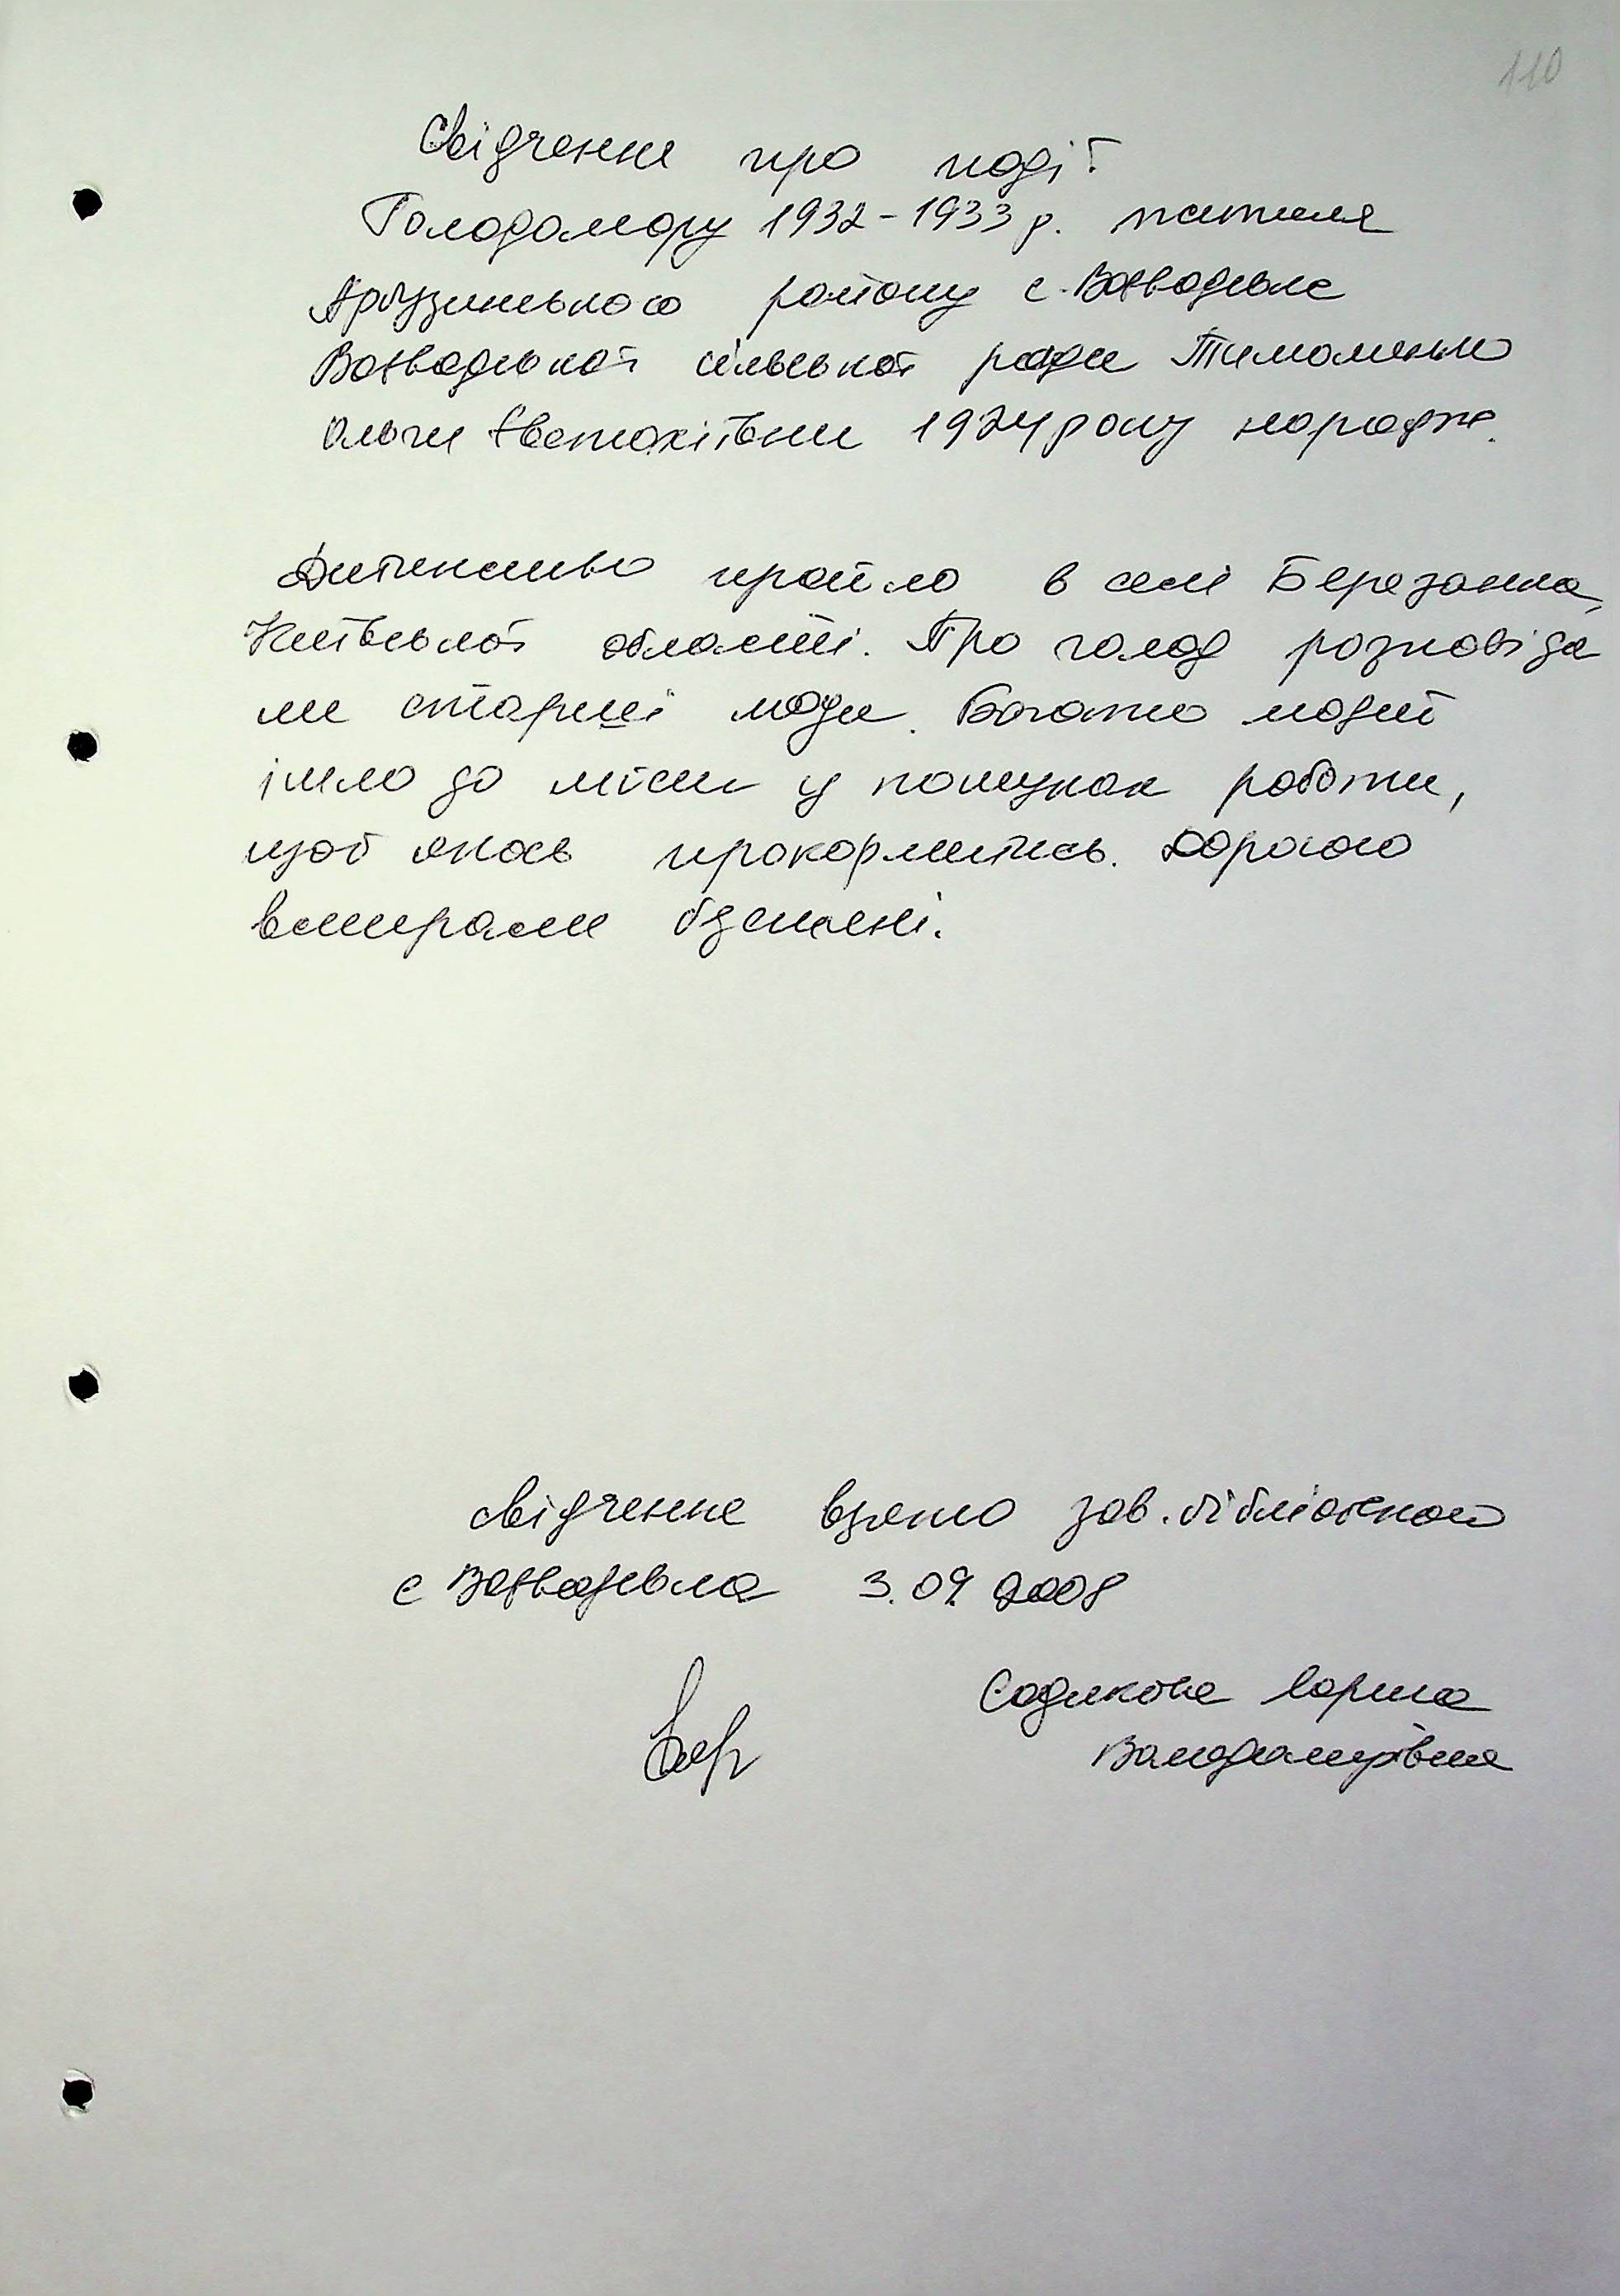 110
Свідчення про події
Голодомору 1932-1933 р. жителя
Арбузинського району с. Воєводське
Воєводської сільської ради Тимошенко
Ольги Євстахіївни 1924 року народж.
Дитинство пройшло в селі Березанка,
Київської області. Про голод розповіда
ли старші люди. Багато людей
ішло до міст у пошуках роботи,
щоб якось прокормитись. Дорогою
вмирали бідні.
свідчення взято зав. бібліотекою
с Воєводська 3.09.2008
Садикова Лариса
Володимирівна